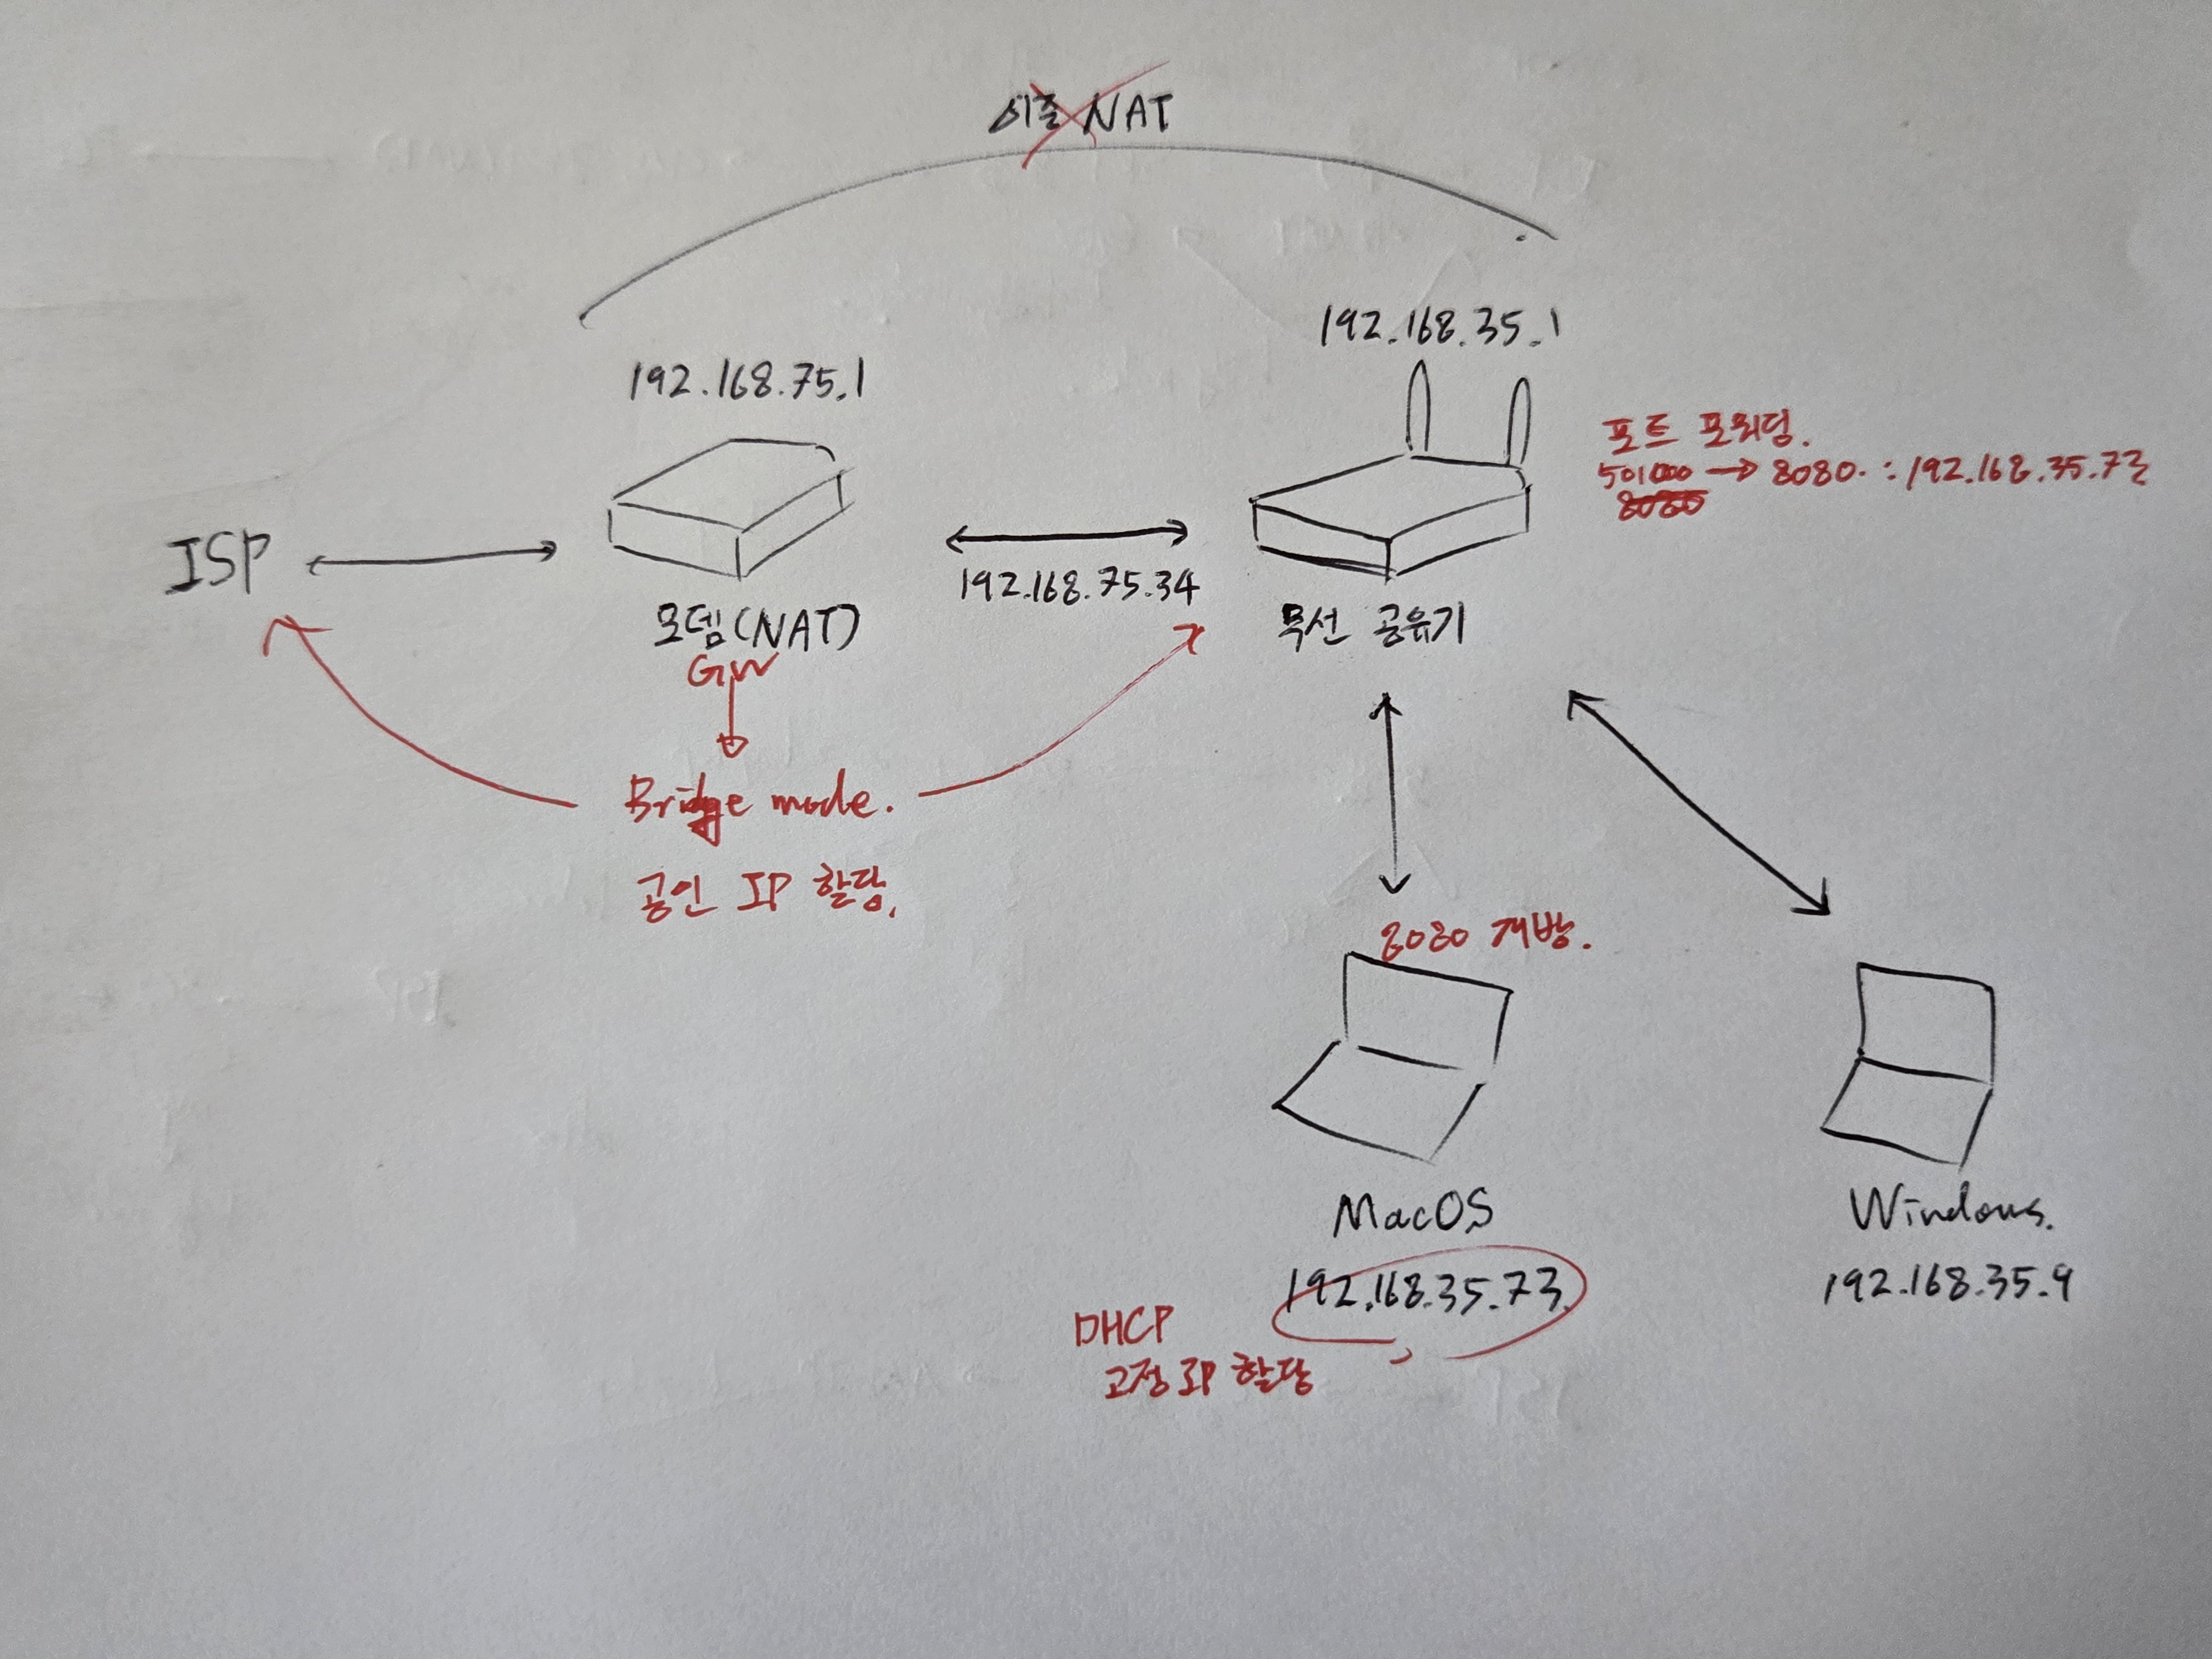 이중 NAT
192.168.35.1
192.168.75.1
포트 포워딩.
501000 → 8080. : 192.168.35.73
8080
ISP
192.168.75.34
모뎀(NAT)
무선 공유기
GW
Bridge mode.
공인 IP 할당.
8080 개방.
MacOS
Windows.
192.168.35.73.
192.168.35.9
DHCP
고정 IP 할당